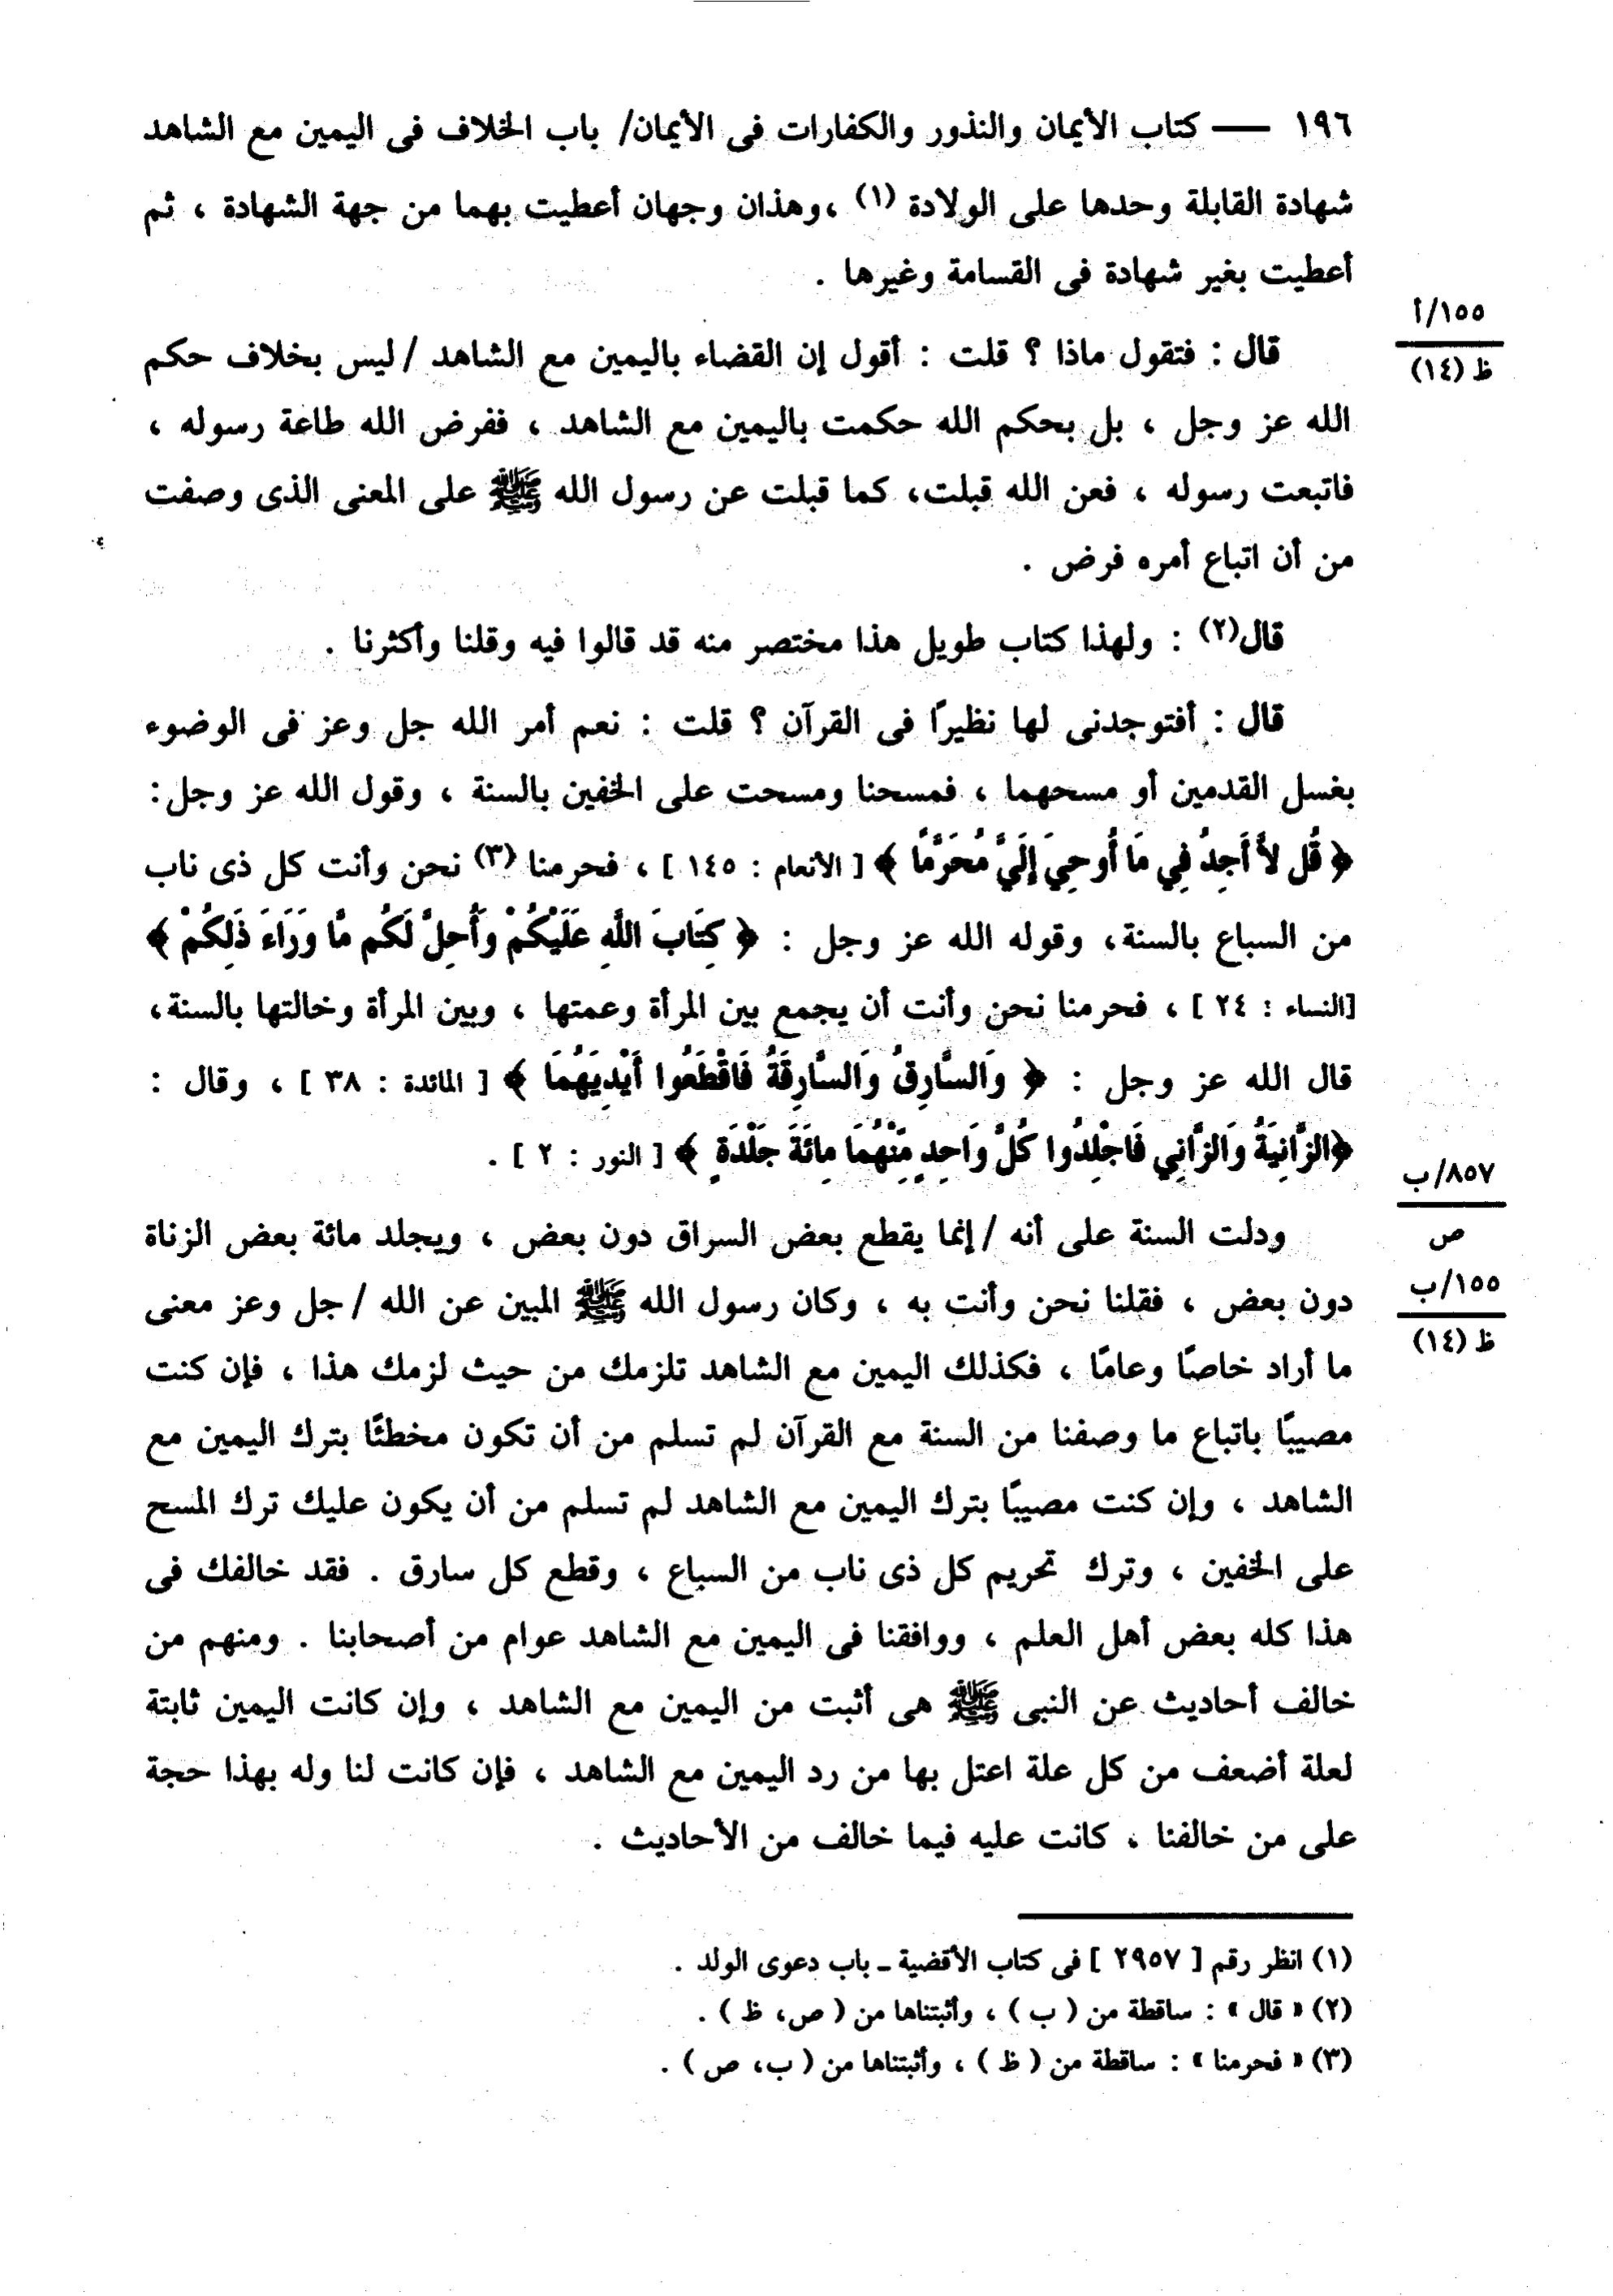 ١٩٦ — كتاب الأيمان والنذور والكفارات فى الأيمان/ باب الخلاف فى اليمين مع الشاهد
شهادة القابلة وحدها على الولادة (١) ،وهذان وجهان أعطيت بهما من جهة الشهادة ، ثم
أعطيت بغير شهادة فى القسامة وغيرها .
١٥٥/أ
ظ (١٤)
قال : فتقول ماذا ؟ قلت : أقول إن القضاء باليمين مع الشاهد / ليس بخلاف حكم
الله عز وجل ، بل بحكم الله حكمت باليمين مع الشاهد ، ففرض الله طاعة رسوله ،
فاتبعت رسوله ، فعن الله قبلت، كما قبلت عن رسول الله ﷺ على المعنى الذى وصفت
من أن اتباع أمره فرض .
قال(٢) : ولهذا كتاب طويل هذا مختصر منه قد قالوا فيه وقلنا وأكثرنا .
قال : أفتوجدنى لها نظيرًا فى القرآن ؟ قلت : نعم أمر الله جل وعز فى الوضوء
بغسل القدمين أو مسحهما ، فمسحنا ومسحت على الخفين بالسنة ، وقول الله عز وجل:
﴿ قُل لاَّ أَجِدُ فِي مَا أُوحِيَ إِلَيَّ مُحَرَّمًا ﴾ [ الأنعام : ١٤٥ ] ، فحرمنا (٣) نحن وأنت كل ذى ناب
من السباع بالسنة، وقوله الله عز وجل : ﴿ كِتَابَ اللَّهِ عَلَيْكُمْ وَأُحِلَّ لَكُم مَّا وَرَاءَ ذَلِكُمْ ﴾
[النساء : ٢٤ ] ، فحرمنا نحن وأنت أن يجمع بين المرأة وعمتها ، وبين المرأة وخالتها بالسنة،
قال الله عز وجل : ﴿ وَالسَّارِقُ وَالسَّارِقَةُ فَاقْطَعُوا أَيْدِيَهُمَا ﴾ [ المائدة : ٣٨ ] ، وقال :
﴿الزَّانِيَةُ وَالزَّانِي فَاجْلِدُوا كُلَّ وَاحِدٍ مِّنْهُمَا مِائَةَ جَلْدَةٍ ﴾ [ النور : ٢ ] .
٨٥٧/ب
ص
ودلت السنة على أنه / إنما يقطع بعض السراق دون بعض ، ويجلد مائة بعض الزناة
١٥٥/ب
ظ (١٤)
دون بعض ، فقلنا نحن وأنت به ، وكان رسول الله ﷺ المبين عن الله / جل وعز معنى
ما أراد خاصًا وعامًا ، فكذلك اليمين مع الشاهد تلزمك من حيث لزمك هذا ، فإن كنت
مصيبًا باتباع ما وصفنا من السنة مع القرآن لم تسلم من أن تكون مخطئًا بترك اليمين مع
الشاهد ، وإن كنت مصيبًا بترك اليمين مع الشاهد لم تسلم من أن يكون عليك ترك المسح
على الخفين ، وترك تحريم كل ذى ناب من السباع ، وقطع كل سارق . فقد خالفك فى
هذا كله بعض أهل العلم ، ووافقنا فى اليمين مع الشاهد عوام من أصحابنا . ومنهم من
خالف أحاديث عن النبى ﷺ هى أثبت من اليمين مع الشاهد ، وإن كانت اليمين ثابتة
لعلة أضعف من كل علة اعتل بها من رد اليمين مع الشاهد ، فإن كانت لنا وله بهذا حجة
على من خالفنا ، كانت عليه فيما خالف من الأحاديث .
(١) انظر رقم [ ٢٩٥٧ ] فى كتاب الأقضية ـ باب دعوى الولد .
(٢) « قال » : ساقطة من ( ب ) ، وأثبتناها من ( ص، ظ ) .
(٣) « فحرمنا » : ساقطة من ( ظ ) ، وأثبتناها من ( ب، ص ) .